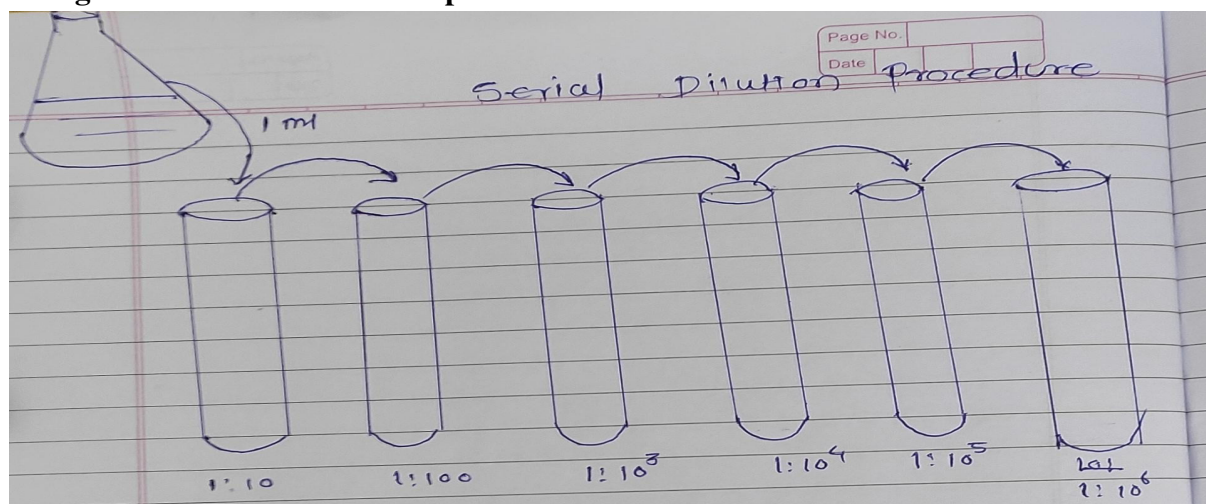 Page No.
Date
Serial Dilution Procedure
1 ml
1:10
1:100
1:10³
1:10⁴
1:10⁵
1:10⁶